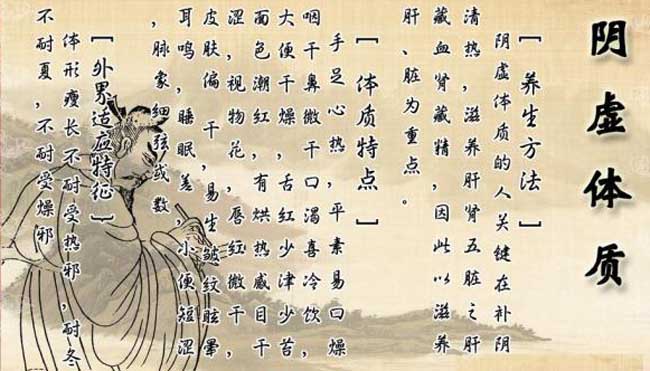 阴虚体质
[养生方法]
阴虚体质的人关键在补阴
清热，滋养肝肾五脏之肝
藏血肾藏精，因此以滋养
肝、脏为重点。
[体质特点]
手足心热，平素易口燥
咽干鼻微干口渴喜冷饮，
大便干燥，舌红少津少苔，
面色潮红，有烘热感目干
涩，视物花，唇红微干，
皮肤偏干，易生皱纹眩晕
耳鸣，睡眠差，小便短涩
，脉象细弦或数，
[外界适应特征]
体形瘦长不耐受热邪，耐冬
不耐夏，不耐受燥邪